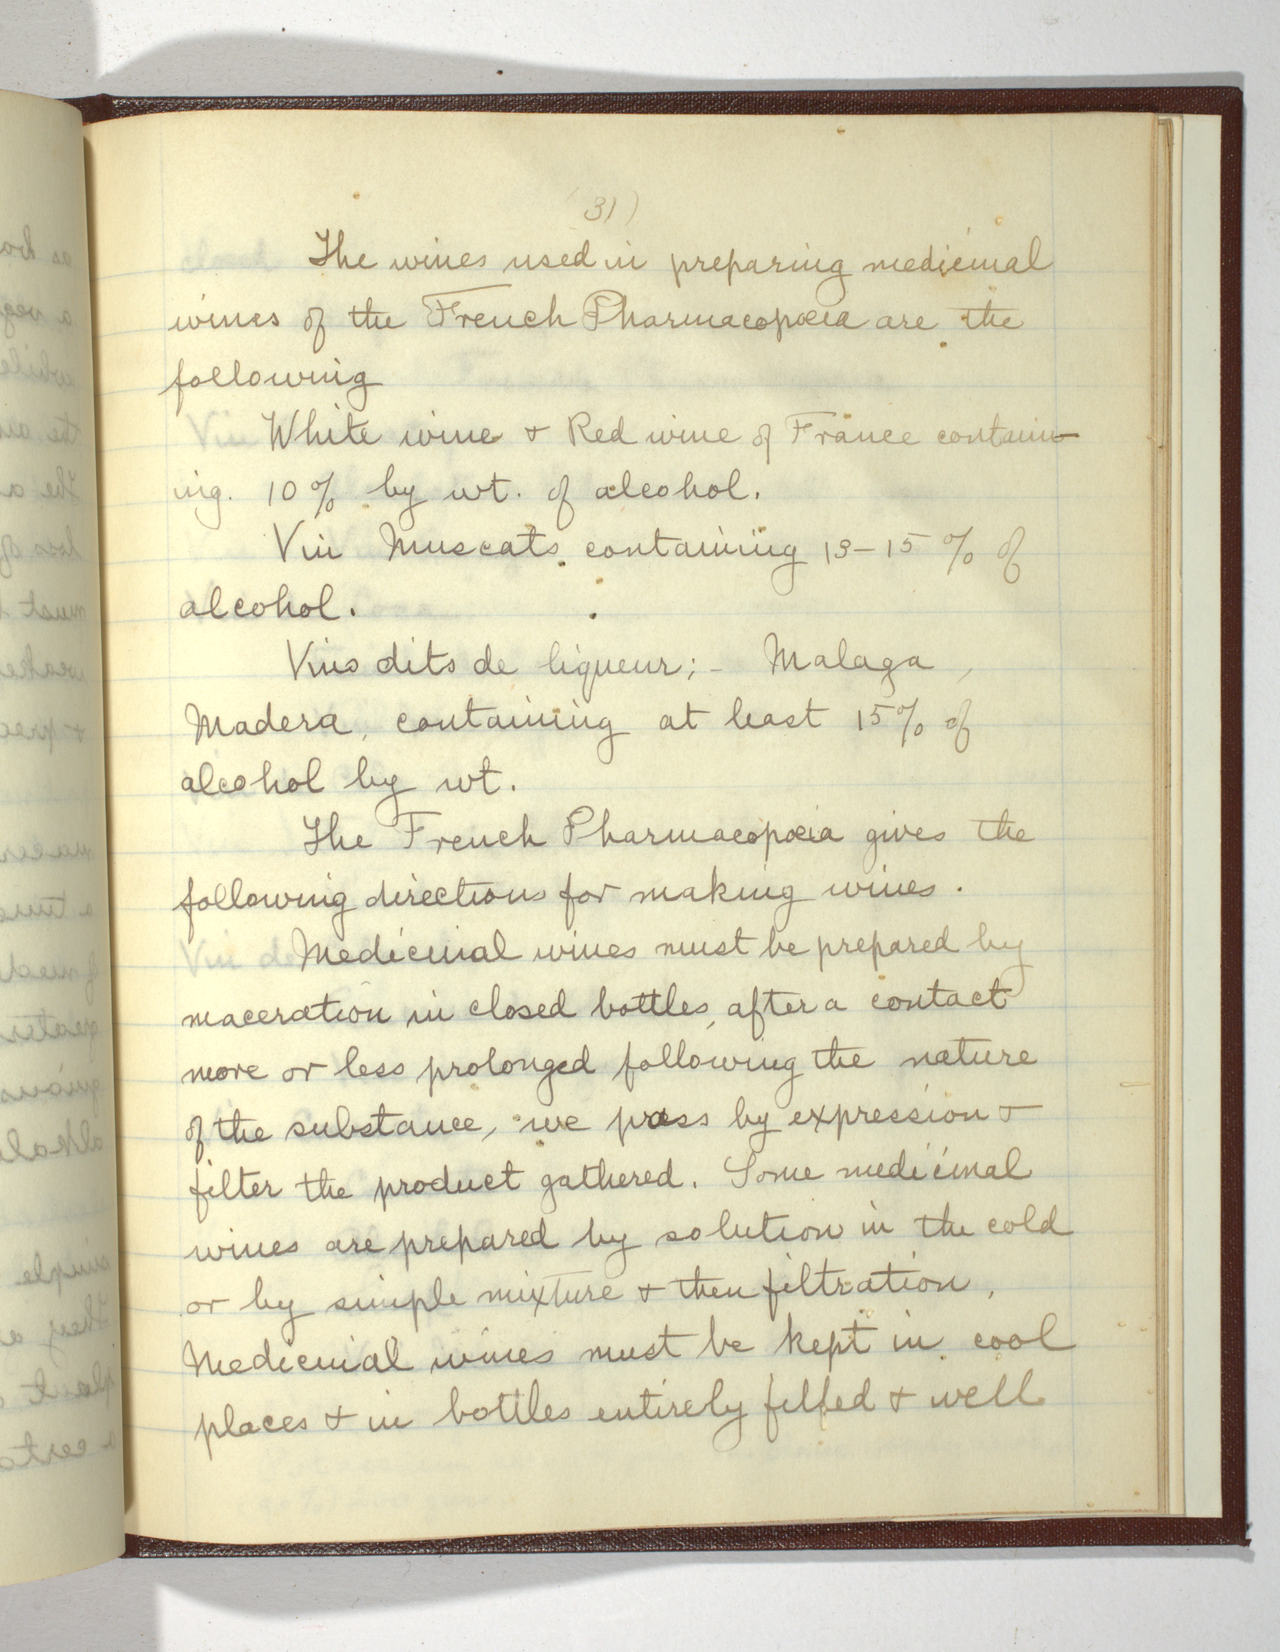 (31)
The wines used in preparing medicinal
wines of the French Pharmacopœia are the
following
White wine & Red wine of France contain-
ing. 10% by wt. of alcohol.
Vin Muscats containing 13-15% of
alcohol.
Vins dits de liqueur;- Malaga,
Madera, containing at least 15% of
alcohol by wt.
The French Pharmacopœia gives the
following directions for making wines.
Medicinal wines must be prepared by
maceration in closed bottles, after a contact
more or less prolonged following the nature
of the substance, we press by expression &
filter the product gathered. Some medicinal
wines are prepared by solution in the cold
or by simple mixture & then filtration.
Medicinal wines must be kept in cool
places & in bottles entirely filled & well